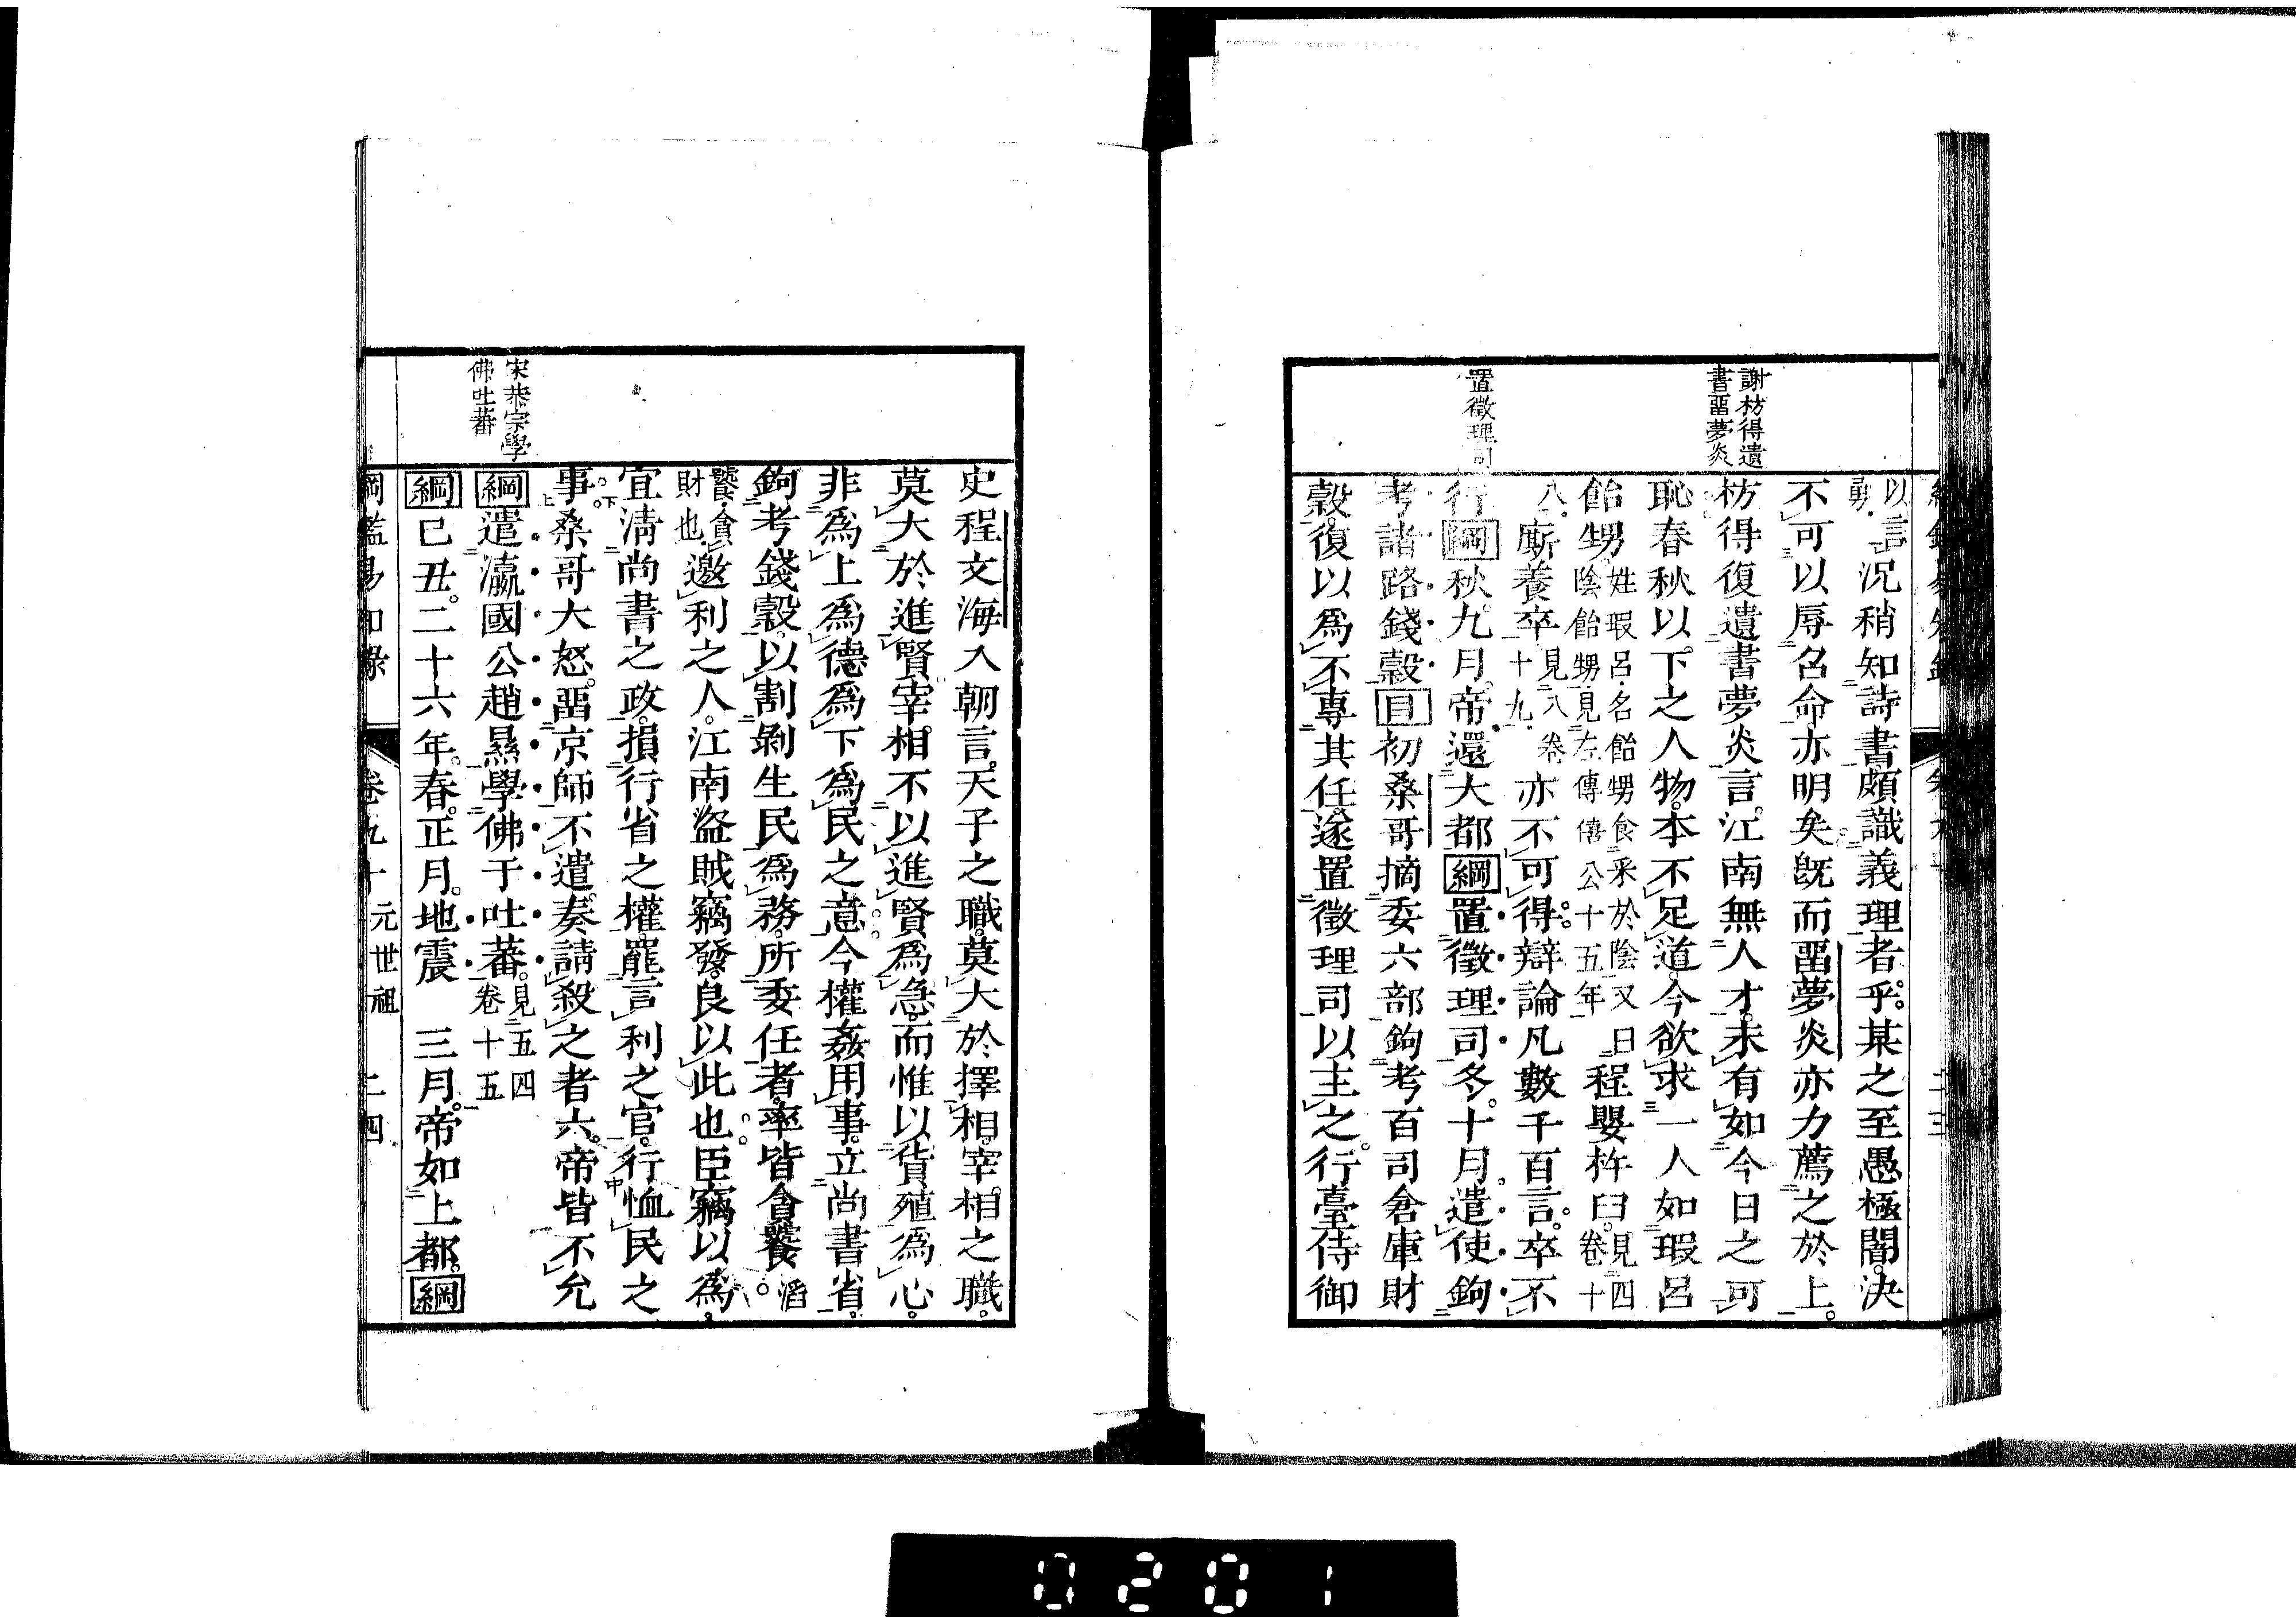 謝枋得遺
書畱夢炎
置徵理司
以言況稍知詩書頗識義理者乎。某之至愚極闇。決
不可以辱召命亦明矣既而畱夢炎亦力薦之於上。
枋得復遺書夢炎言。江南無人才。未有如今日之可
恥春秋以下之人物。本不足道。今欲求一人如瑕呂
飴甥姓瑕呂名飴甥食采於陰又曰陰飴甥見左傳僖公十五年程嬰杵臼。見四卷十
八。廝養卒見八卷十九亦不可得。辯論凡數千百言。卒不
行綱秋。九月。帝還大都綱置徵理司冬。十月。遣使鉤
考諸路錢穀目初桑哥摘委六部鉤考百司倉庫財
穀。復以爲不專其任。遂置徵理司以主之。行臺侍御
史程文海入朝言。天子之職。莫大於擇相。宰相之職。
莫大於進賢。宰相不以進賢爲急。而惟以貨殖爲心。
非爲上爲德爲下爲民之意。今權姦用事。立尚書省。
鉤考錢穀。以割剝生民爲務。所委任者。率皆貪饕。滔
饕貪財也邀利之人。江南盜賊竊發。良以此也。臣竊以爲。
宜淸尚書之政。損行省之權。罷言利之官。行恤民之
事。桑哥大怒。畱京師不遣。奏請殺之者六。帝皆不允
綱遣瀛國公趙㬎學佛于吐蕃。見五四卷十五
綱己丑。二十六年。春。正月。地震　三月。帝如上都。綱
宋恭宗學
佛吐蕃
綱鑑易知錄　卷九十　元世祖　二四
0201